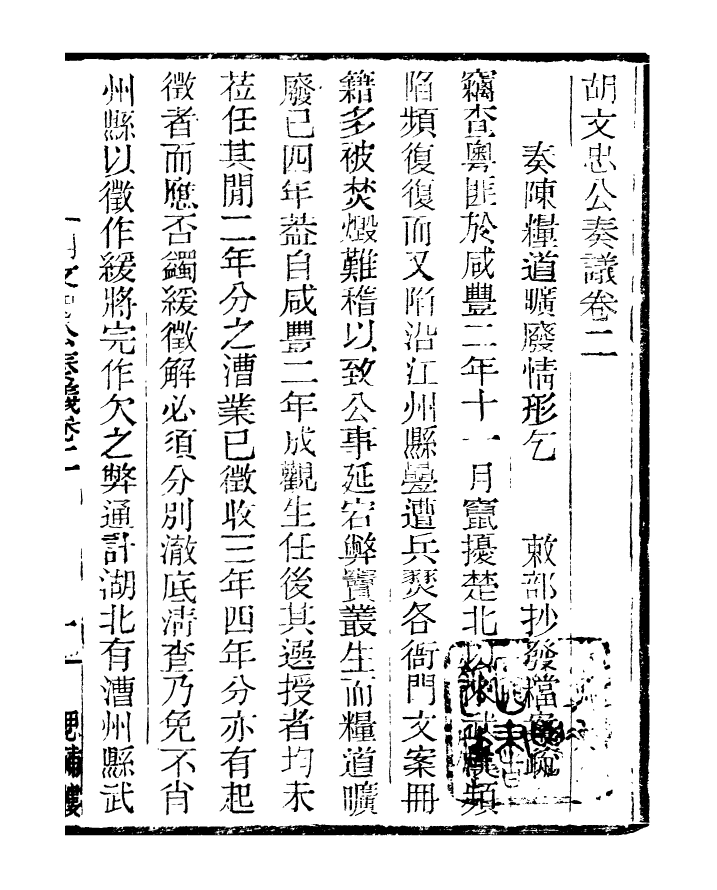 胡文忠公奏議卷二
奏陳糧道曠廢情形乞 敕部抄發檔案疏
竊查粵匪於咸豐二年十一月竄擾楚北頻
陷頻復復而又陷沿江州縣疊遭兵燹各衙門文案冊
籍多被焚燬難稽以致公事延宕弊竇叢生而糧道曠
廢已四年葢自咸豐二年成觀生任後其選授者均未
莅任其閒二年分之漕業已徵收三年四年分亦有起
徵者而應否蠲緩徵解必須分別澈底清查乃免不肖
州縣以徵作緩將完作欠之弊通計湖北有漕州縣武
胡文忠公奏議卷二 一